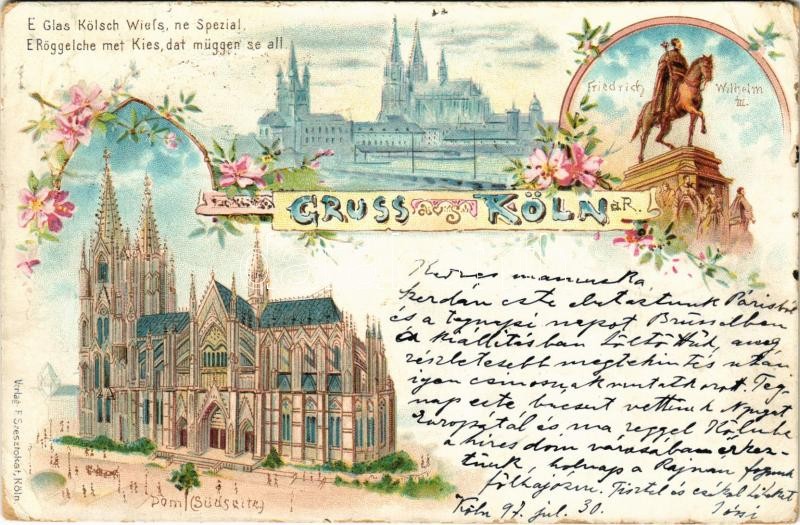 E Glas Kölsch Wieſs, ne Spezial,
E Röggelche met Kies, dat müggen se all.
Friedrich Wilhelm
III.
GRUSS aus KÖLN a R.
Kedves mamuska,
szerdán este elutaztunk Párisból
és a tegnapi napot Brüsselben
a kiállitásban töltöttük, a
részletesebb megtekintés után
igen csinosnak mutatkozott. Teg-
nap este bucsut vettünk Nyugat
Europától és ma reggel Kölnbe
a hires dom városában érkez-
tünk, holnap a Rajnan fogunk
fölhajózni. Tisztel és csókol
Köln 97. jul. 30.
Dom (Südseite)
Verlag F. Szesztokat, Köln.